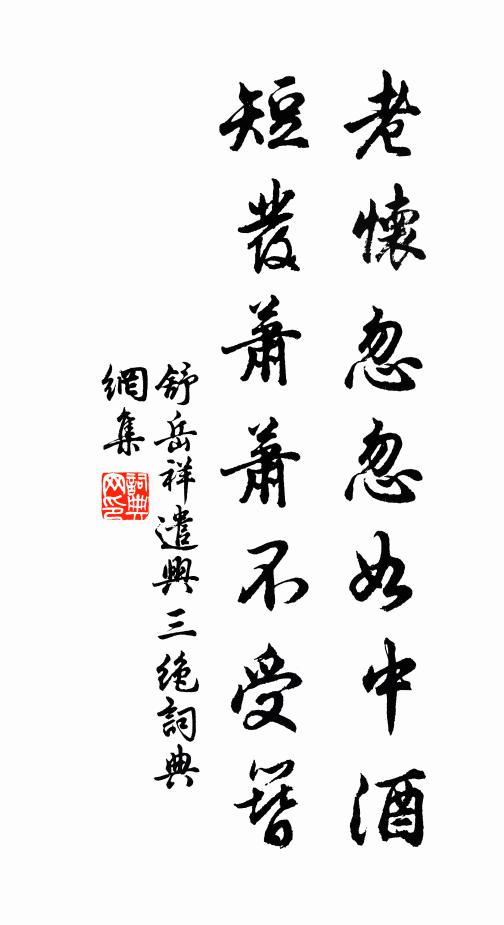 老懷忽忽如中酒
短發蕭蕭不受簪
舒岳祥遣興三絶詞典
網集
詞典
网印